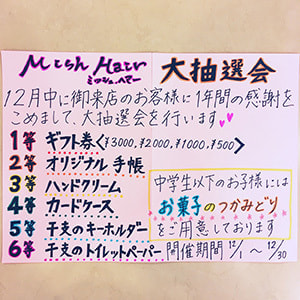 Mish Hair 大抽選会
ミッシュ.ヘアー
12月中に御来店のお客様に1年間の感謝を
こめまして、大抽選会を行います
1等 ギフト券〈¥3000,¥2000,¥1000,¥500〉
2等 オリジナル手帳
3等 ハンドクリーム
4等 カードケース
5等 干支のキーホルダー
6等 干支のトイレットペーパー
中学生以下のお子様には
お菓子のつかみどり
をご用意しております
開催期間 12/1〜12/30